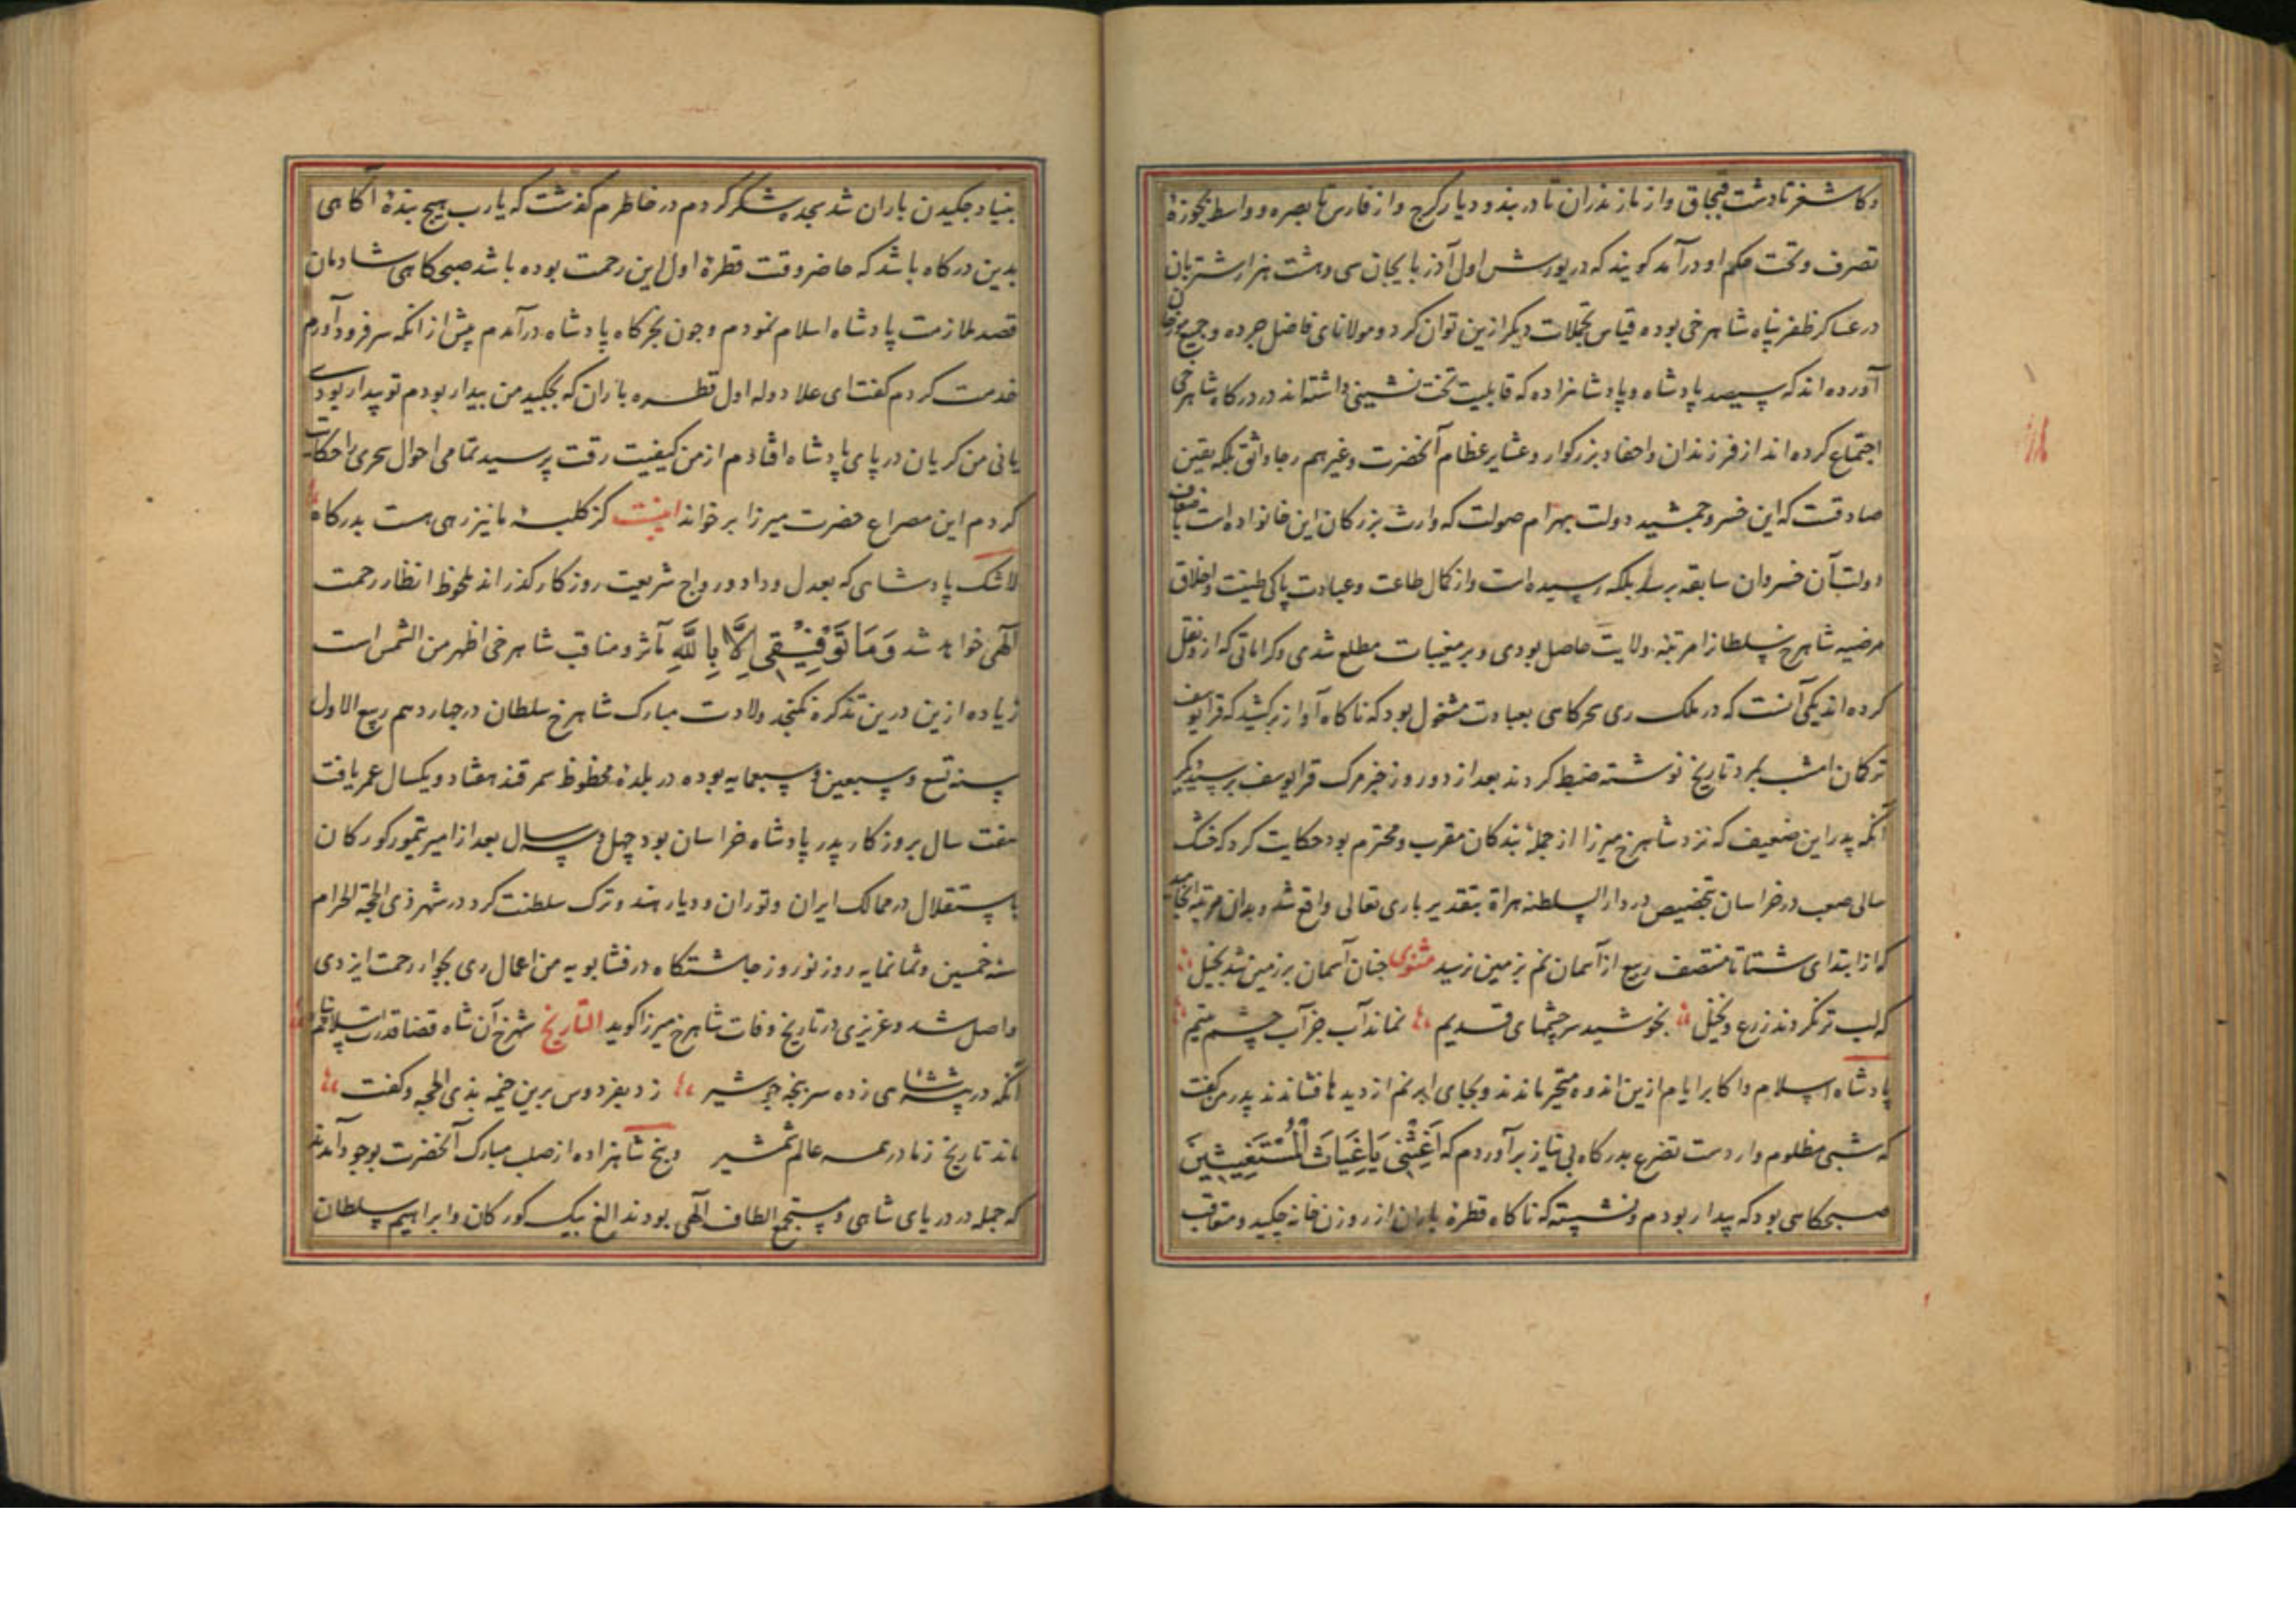 و کاشغر تا دشت قبچاق و از مازندران تا دربند و دیار کرج و از فارس تا بصره و واسط بحوزهٔ
تصرف و تحت حکم او درآمد کویند که در یورش اول آذربایجان سی و هشت هزار شتربان
در عساکر ظفر پناه شاهرخی بوده قیاس تجملات دیکر ازین توان کرد و مولانای فاضل و جمیع مورخان
آورده اند که سیصد پادشاه و پادشاهزاده که قابلیت تخت نشینی داشته اند در درکاه شاهرخی
اجتماع کرده اند از فرزندان و احفاد بزرکوار و عشایر عظام آنحضرت و غیرهم رجا واثق بلکه یقین
صادقست که این خسرو جمشید دولت بهرام صولت که وارث بزرکان این خانواده است
دولت آن خسروان سابقه برسد بلکه رسیده است و از کمال طاعت و عبادت و پاکی طینت و اخلاق
مرضیه شاهرخ سلطانرا مرتبهٔ ولایت حاصل بودی و بر مغیبات مطلع شدی و کراماتی که ازو نقل
کرده اند یکی آنست که در ملک ری سحرکاهی بعبادت مشغول بود که ناکاه آواز برکشید که قرا یوسف
ترکمان امشب بمرد تاریخ نوشته ضبط کردند بعد از دو روز خبر مرک قرا یوسف برسید دیکر
آنکه پدر این ضعیف که نزد شاهرخ میرزا از جملهٔ بندکان مقرب و محترم بود حکایت کرد که خشک
سالی صعب در خراسان بتخصیص در دار السلطنه هراة بتقدیر باری تعالی واقع شد و بدان مرتبه انجامید
که از ابتدای شتا تا منتصف ربیع از آسمان نم بزمین نرسید مثنوی جنان آسمان بر زمین شد بخیل
که لب تر نکردند زرع و نخیل بخوشید سرچشمهای قدیم نماند آب جز آب چشم یتیم
پادشاه اسلام و اکابر ایام ازین اندوه متحیر ماندند و بجای ابر نم از دیدها فشاندند پدر من کفت
که شبی مظلوم وار دست تضرع بدرکاه بی نیاز برآوردم که اَغِثْنِی یَا غِیَاثَ الْمُسْتَغِیثِینَ
صبحکاهی بود که بیدار بودم و نشسته که ناکاه قطرهٔ باران از روزن خانه چکید و متعاقب
بنیاد چکیدن باران شد سجده شکر کردم در خاطرم کذشت که یا رب هیچ بندهٔ آکاهی
بدین درکاه باشد که حاضر وقت قطرهٔ اول این رحمت بوده باشد صبحکاهی شادمان
قصد ملازمت پادشاه اسلام نمودم و جون بخرکاه پادشاه درآمدم پیش از انکه سر فرود آورم
خدمت کردم کفت ای علا دوله اول قطره باران که بچکید من بیدار بودم تو بیدار بودی
یانی من کریان در پای پادشاه افتادم از من کیفیت رقت پرسید تمامی احوال سحری را حکایت
کردم این مصراع حضرت میرزا برخواند اینست کز کلبهٔ ما نیز رهی هست بدرکاه
لاشک پادشاهی که بعدل و داد و رواج شریعت روزکار کذراند ملحوظ انظار رحمت
الهی خواهد شد وَمَا تَوْفِیْقِی اِلَّا بِاللّٰهِ مآثر و مناقب شاهرخی اظهر من الشمس است
زیاده ازین درین تذکره نکنجد ولادت مبارک شاهرخ سلطان در جهاردهم ربیع الاول
سنه تسع و سبعین و سبعمایه بوده در بلدهٔ محظوظ سمرقند هفتاد و یکسال عمر یافت
هفت سال بروزکار پدر پادشاه خراسان بود چهل و سه سال بعد از امیر تیمور کورکان
باستقلال در ممالک ایران و توران و دیار هند و ترک سلطنت کرد در شهر ذی الحجة الحرام
سنه خمسین و ثمانمایه روز نوروز جاشتکاه در فشابویه من اعمال ری بجوار رحمت ایزدی
واصل شد و عزیزی در تاریخ وفات شاهرخ میرزا کوید التاریخ شهرخ آن شاه قضا قدرت اسلام پناه
آنکه در بیشهٔ شاهی زده سر پنجه چو شیر زد بفردوس برین خیمه بذی الحجه و کفت
ماند تاریخ ز ما در همه عالم شمشیر و پنج شاهزاده از صلب مبارک آنحضرت بوجود آمدند
که جمله در دریای شاهی و مستجمع الطاف الهی بودند الغ بیک کورکان و ابراهیم سلطان